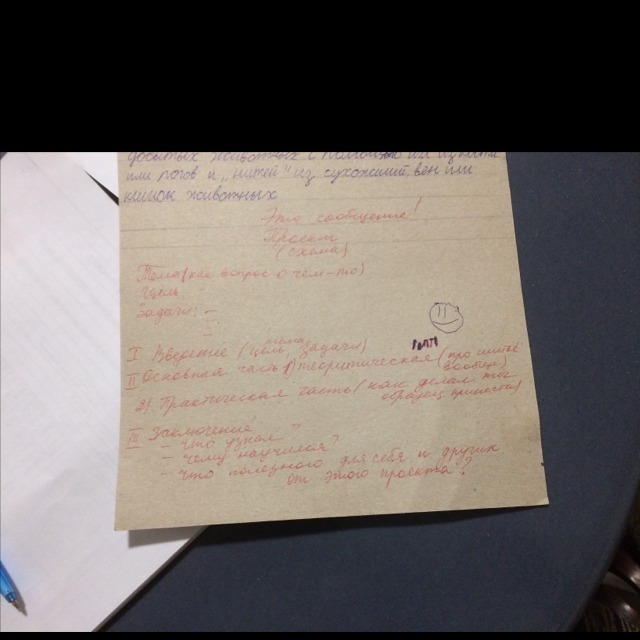 добытых животных с помощью игл из кости
или рогов и „нитей" из сухожилий, вен или
кишок животных
Это сообщение!
Проект
(схема)
Тема (как вопрос о чём-то)
Цель
Задачи: –
–
I Введение (цель, задачи)
тема
II Основная часть 1) теоритическая (про шитьё
вообще)
2) Практическая часть (как делал ты
образец принести)
III Заключение
– что узнал?
– чему научился?
– что полезного для себя и других
от этого проекта?